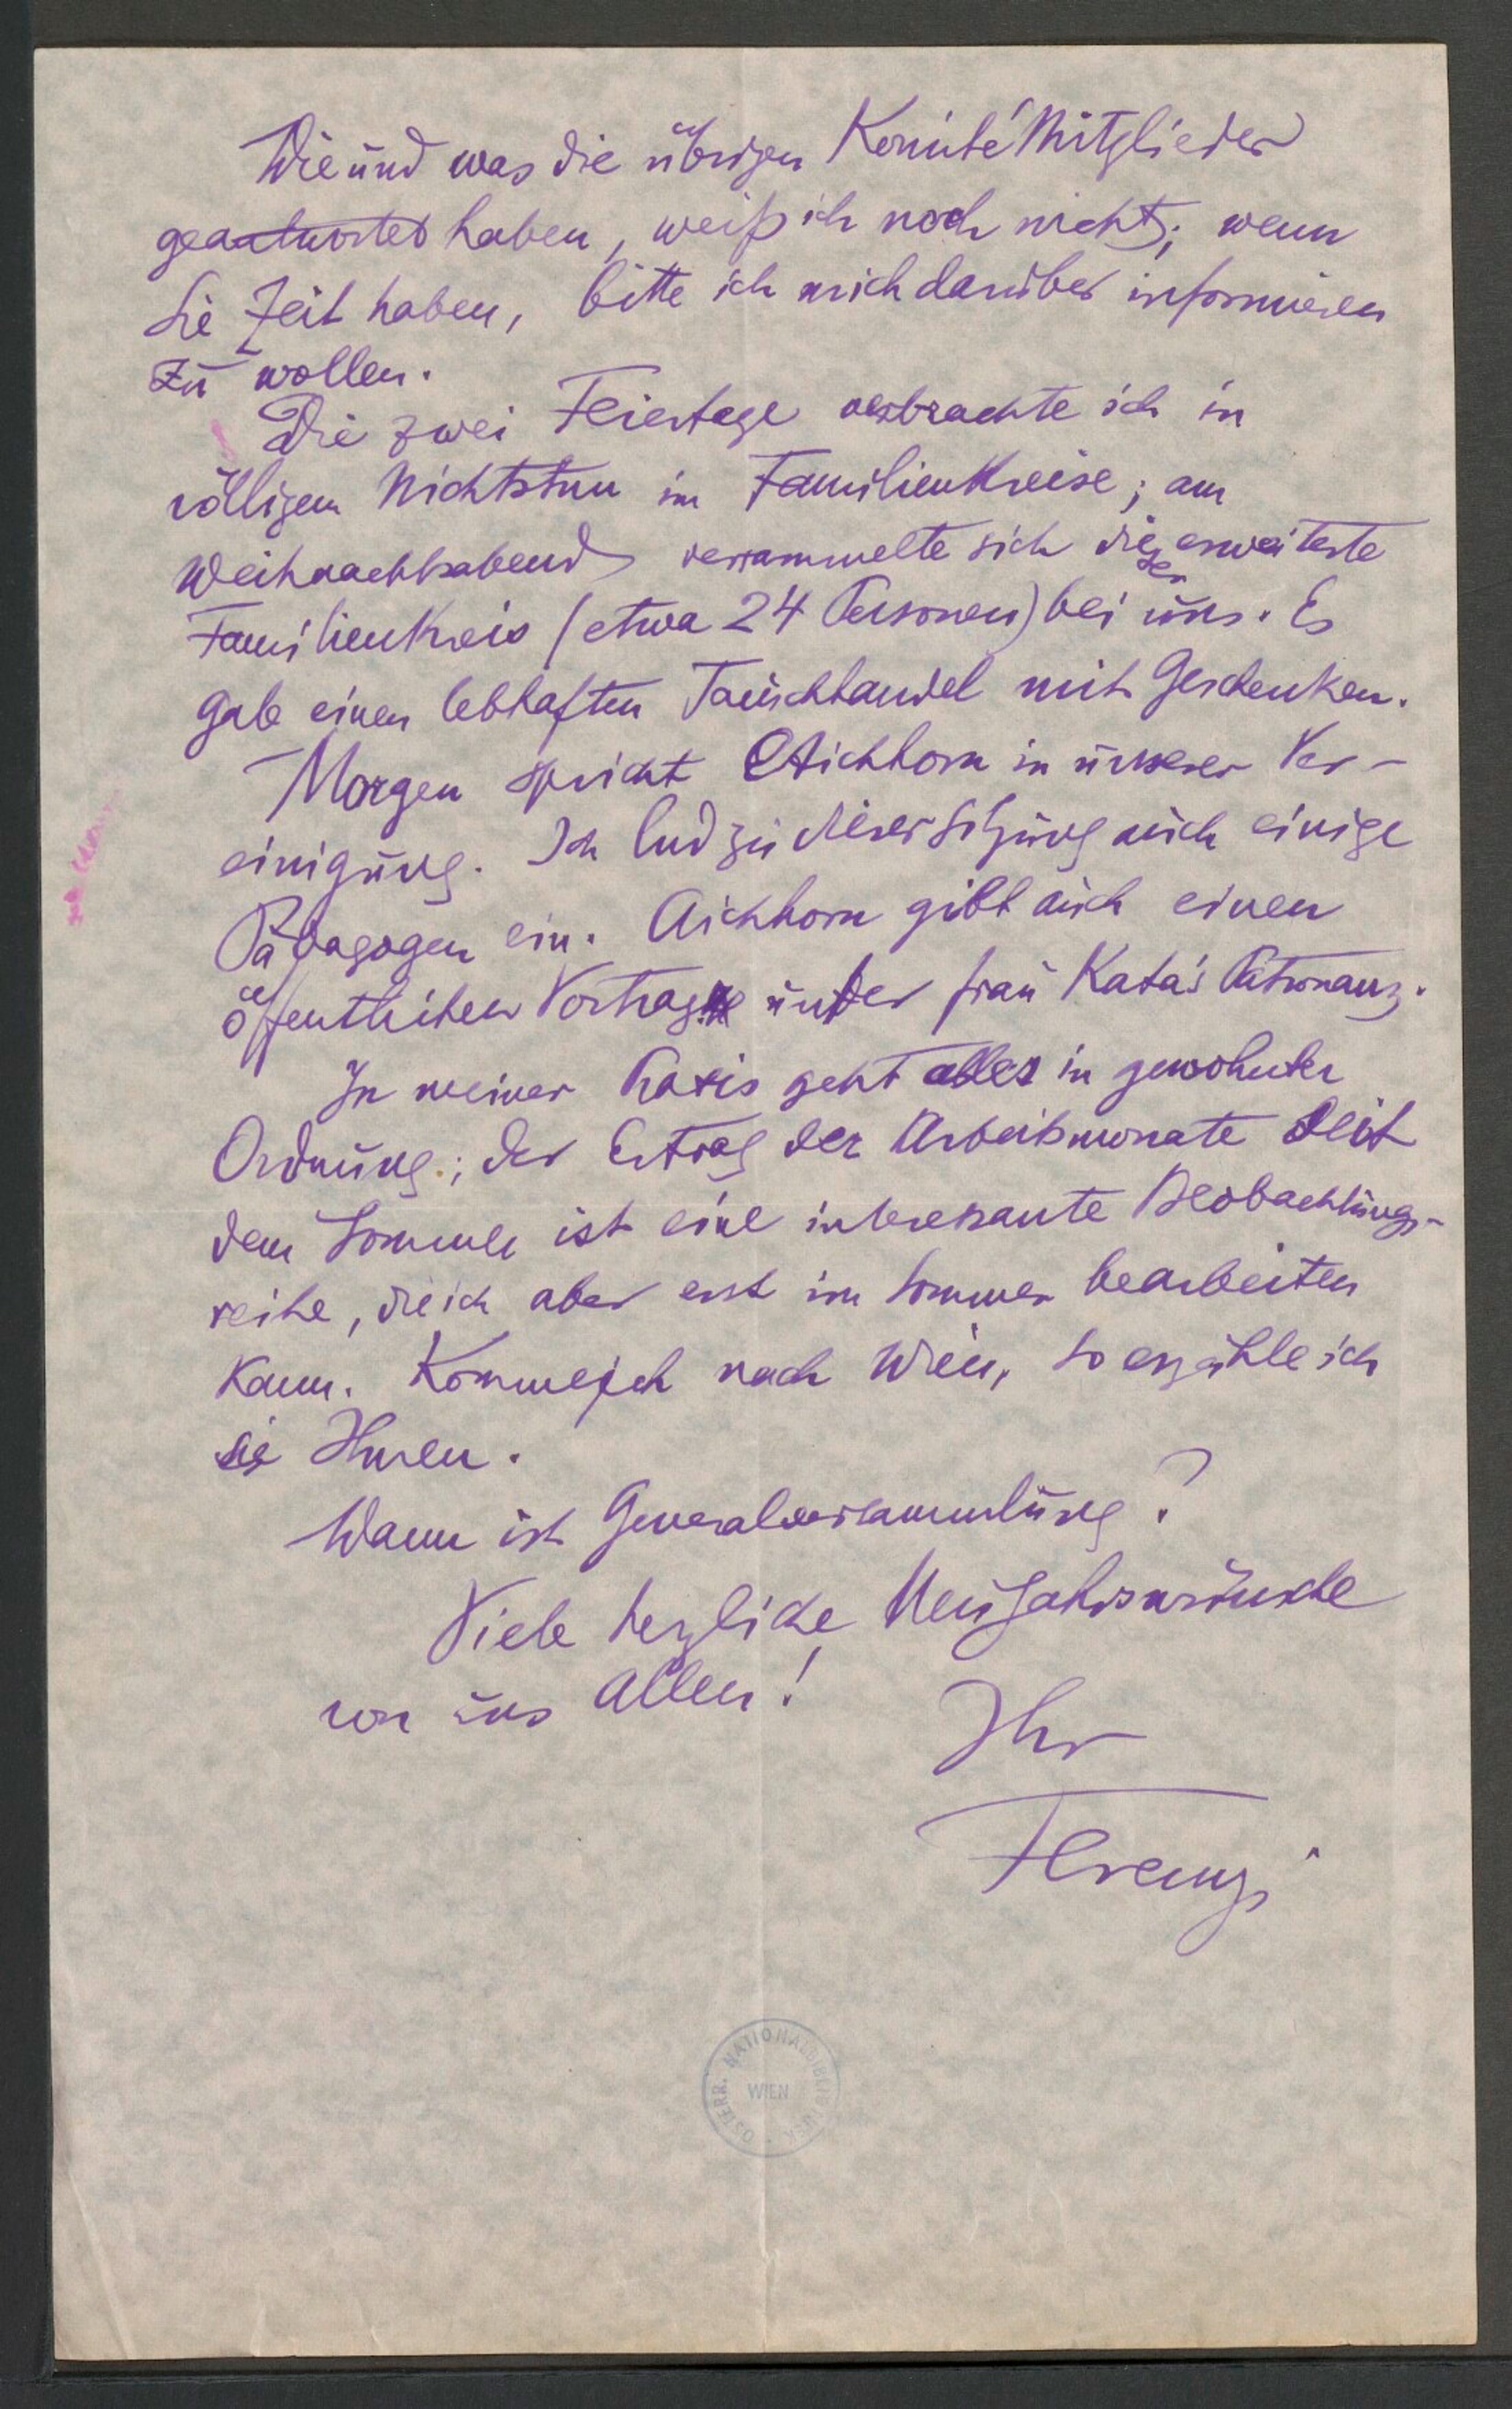 Wie und was die übrigen Komité Mitglieder
geantwortet haben, weiß ich noch nicht; wenn
Sie Zeit haben, bitte ich mich darüber informieren
zu wollen.
Die zwei Feiertage verbrachte ich in
völligem Nichtstun im Familienkreise; am
Weihnachtsabend versammelte sich die erweiterte
der
Familienkreis (etwa 24 Personen) bei uns. Es
gab einen lebhaften Tauschhandel mit Geschenken.
Morgen spricht Aichhorn in unserer Ver-
einigung. Ich lud zu dieser Sitzung auch einige
Pädagogen ein. Aichhorn gibt auch einen
öffentlichen Vortrag unter Frau Kata's Patronanz.
In meiner Praxis geht alles in gewohnter
Ordnung; der Ertrag der Arbeitsmonate seit
dem Sommer ist eine interessante Beobachtungs-
reihe, die ich aber erst im Sommer bearbeiten
kann. Komme ich nach Wien, so erzähle ich
sie Ihnen.
Wann ist Generalversammlung?
Viele herzliche Neujahrswünsche
von uns allen!
Ihr
Ferenczi
ÖSTERR. NATIONALBIBLIOTHEK
WIEN